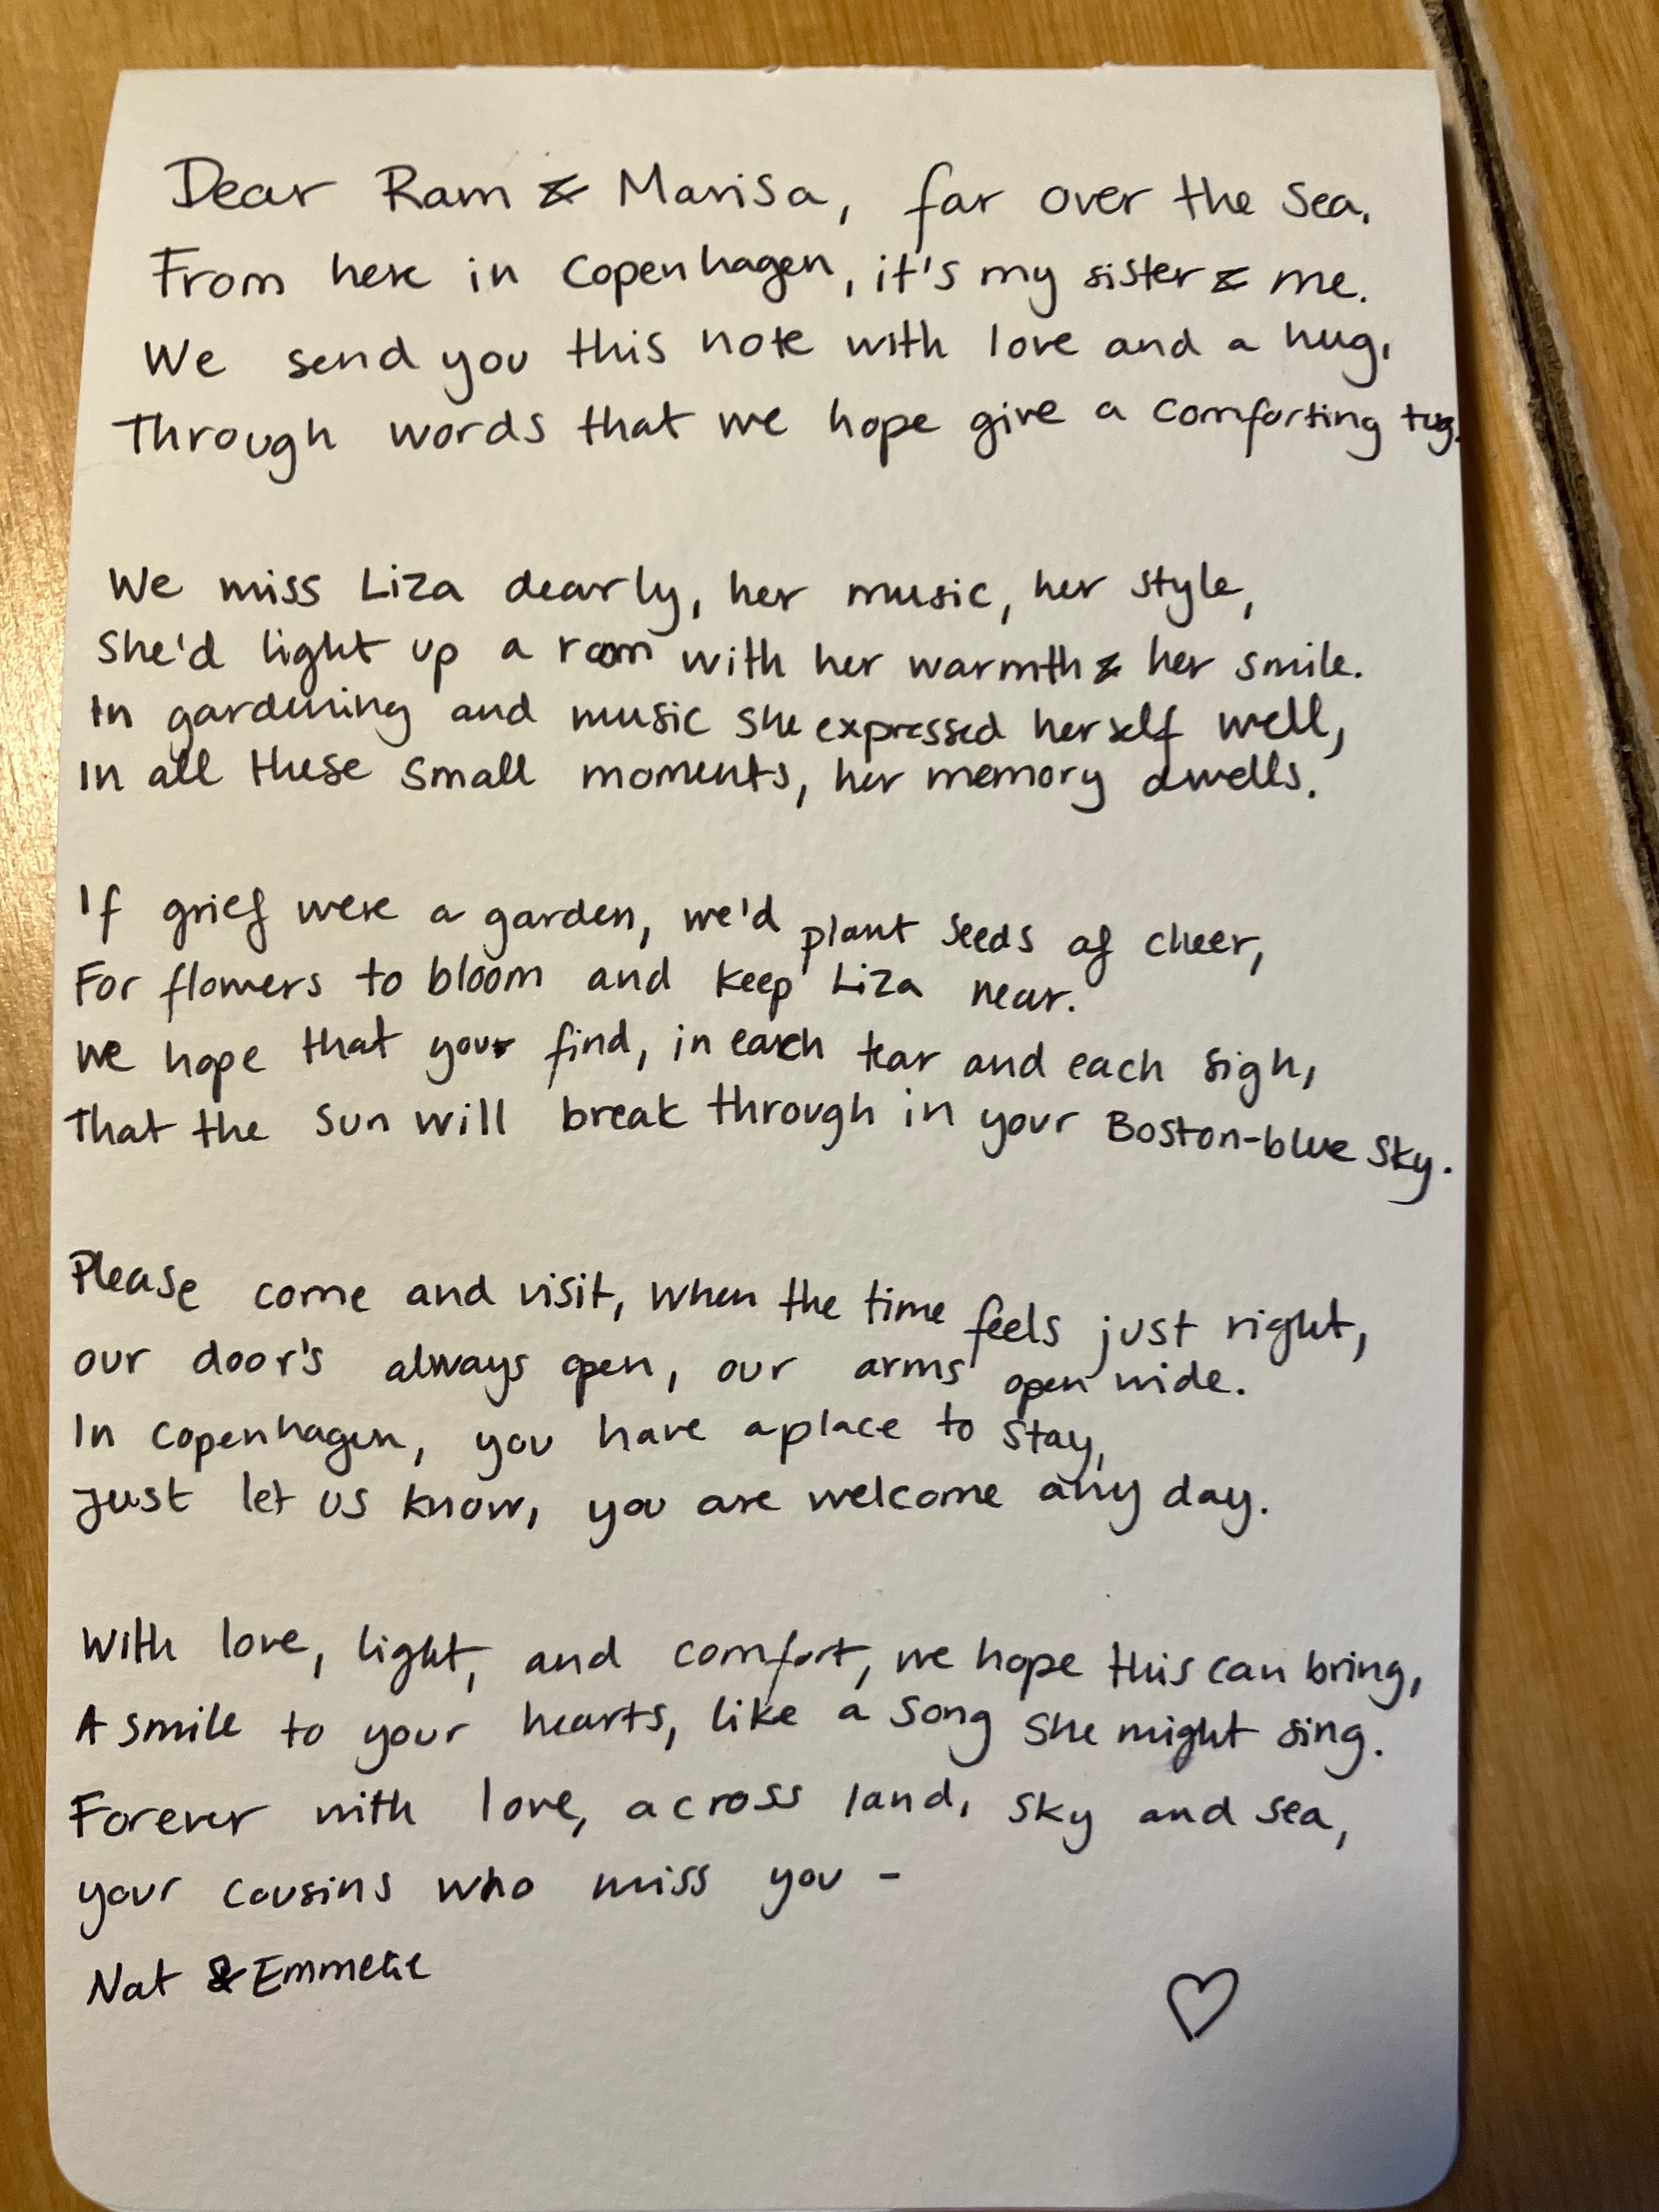 Dear Ram & Marisa, far over the sea,
From here in Copenhagen, it's my sister & me.
We send you this note with love and a hug,
Through words that we hope give a comforting tug.
We miss Liza dearly, her music, her style,
She'd light up a room with her warmth & her smile.
In gardening and music she expressed herself well,
In all these small moments, her memory dwells.
If grief were a garden, we'd plant seeds of cheer,
For flowers to bloom and keep Liza near.
We hope that you find, in each tear and each sigh,
That the sun will break through in your Boston-blue sky.
Please come and visit, when the time feels just right,
our door's always open, our arms open wide.
In Copenhagen, you have a place to stay,
Just let us know, you are welcome any day.
With love, light, and comfort, we hope this can bring,
A smile to your hearts, like a song she might sing.
Forever with love, across land, sky and sea,
your cousins who miss you -
Nat & Emmelie